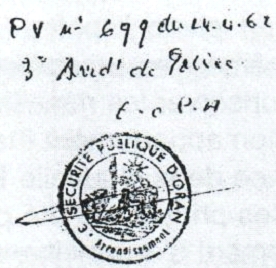 PV n° 699 du 14.4.62
3° Arrdt de Police
E.O.P.A
SECURITE PUBLIQUE D'ORAN
3e Arrondissement